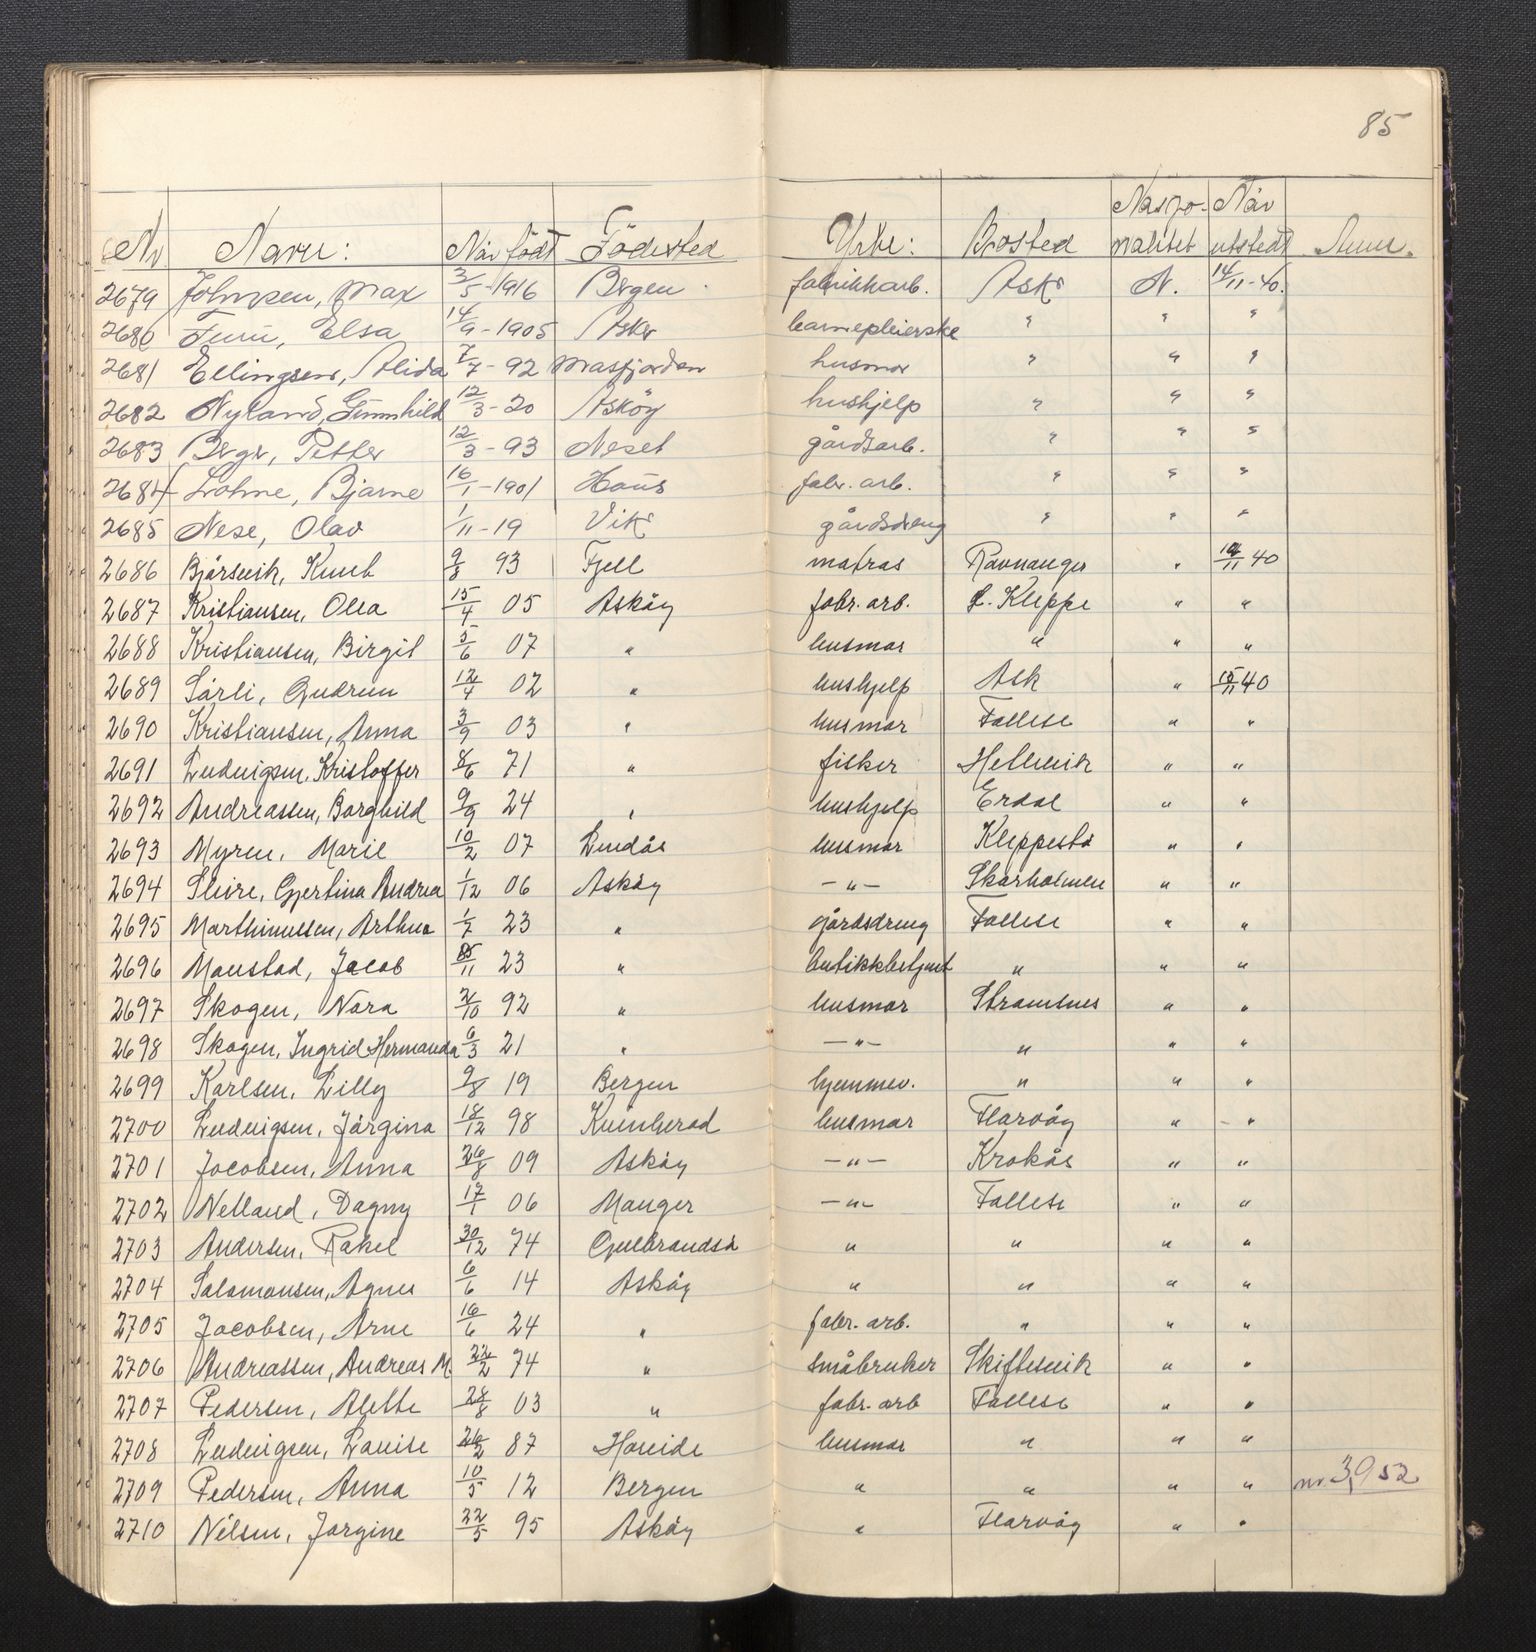 85
Nr Navn: Når født Fødested Yrke: Bosted Nasjo- nalitet Når utstedt Anm.
2679 Johnsen, Max 3/5-1916 Bergen fabrikkarb. Ask N. 14/11-40.
2680 Furu, Elsa 14/9-1905 Ask barnepleierske " " "
2681 Ellingsen, Alida 7/7-92 Masfjorden husmor " " "
2682 Nyland, Gunnhild 12/3-20 Askøy hushjelp " " "
2683 Berge, Petter 12/3-93 Neset gårdsarb. " " "
2684 Lohne, Bjarne 16/1-1901 Haus fabr. arb. " " "
2685 Nese, Olav 1/11-19 Vik gårdsdreng " " "
2686 Bjørsvik, Knut 9/8 93 Fjell matros Ravnanger " 14/11 40
2687 Kristiansen, Olea 15/4 05 Askøy fabr. arb. L. Kleppe " "
2688 Kristiansen, Birgit 5/6 07 " husmor " " "
2689 Sørli, Gudrun 12/4 02 " hushjelp Ask " 15/11 40
2690 Kristiansen, Anna 3/9 03 " husmor Follese " "
2691 Ludvigsen, Kristoffer 8/6 71 " fisker Hetlevik " "
2692 Andreassen, Borghild 9/9 24 " hushjelp Erdal " "
2693 Myren, Marie 10/2 07 Lindås husmor Kleppestø " "
2694 Steire, Gjertina Andrea 1/12 06 Askøy -"- Skarholmen " "
2695 Marthinussen, Arthur 1/7 23 " gårdsdreng Follese " "
2696 Monstad, Jacob /11 23 " butikkbetjent " " "
2697 Skogen, Nora 2/10 92 " husmor Stramsnes " "
2698 Skogen, Ingrid Hermanda 6/3 21 " -"- " " "
2699 Karlsen, Lilly 9/8 19 Bergen hjemmev. " " "
2700 Ludvigsen, Jørgina 18/12 98 Kvinherad husmor Florvåg " "
2701 Jacobsen, Anna 26/8 09 Askøy -"- Krokås " "
2702 Netland, Dagny 17/1 06 Manger -"- Follese " "
2703 Andersen, Rakel 30/12 74 Gulbrandsø " " " "
2704 Salamonsen, Agnes 6/6 14 Askøy " " " "
2705 Jacobsen, Arne 16/6 24 " fabr. arb. " " "
2706 Andreassen, Andreas M. 22/2 74 " småbruker Skiftesvik " "
2707 Pedersen, Alette 28/8 03 " fabr. arb Follese " "
2708 Ludvigsen, Lovise 26/2 87 Hareide husmor " " "
2709 Pedersen, Anna 10/5 12 Bergen " " " " nr. 3952
2710 Nilsen, Jørgine 22/5 95 Askøy " Florvåg " "